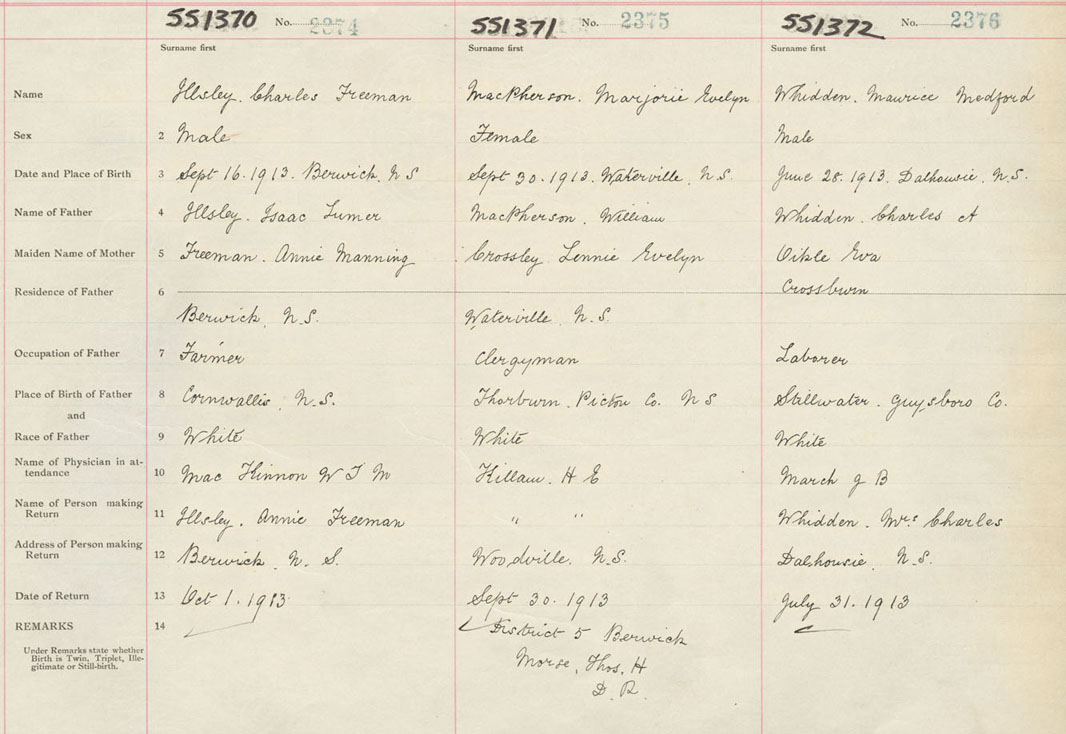 SS1370 No. 2374 SS1371 No. 2375 SS1372 No. 2376
Surname first Surname first Surname first
Name Illsley. Charles Freeman MacPherson. Marjorie Evelyn Whidden. Maurice Medford
Sex 2 Male Female Male
Date and Place of Birth 3 Sept 16. 1913. Berwick. N S Sept 30. 1913. Waterville. N.S. June 28. 1913. Dalhousie. N.S.
Name of Father 4 Illsley. Isaac MacPherson. William Whidden. Charles A
Maiden Name of Mother 5 Freeman. Annie Manning Crossley Lennie Evelyn Oikle Eva
Residence of Father 6 Crossburn
Berwick. N.S. Waterville. N.S.
Occupation of Father 7 Farmer Clergyman Laborer
Place of Birth of Father 8 Cornwallis. N.S. Thorburn. Pictou Co. N S Stillwater. Guysboro Co.
and
Race of Father 9 White White White
Name of Physician in at-
tendance 10 Mac Kinnon W T M Killam. H E March J B
Name of Person making
Return 11 Illsley. Annie Freeman " " Whidden. Mrs Charles
Address of Person making
Return 12 Berwick. N. S. Woodville. N.S. Dalhousie. N.S.
Date of Return 13 Oct 1. 1913 Sept 30. 1913 July 31. 1913
REMARKS 14 District 5 Berwick
Under Remarks state whether
Birth is Twin, Triplet, Ille-
gitimate or Still-birth.
Morse, Thos. H
D. R.